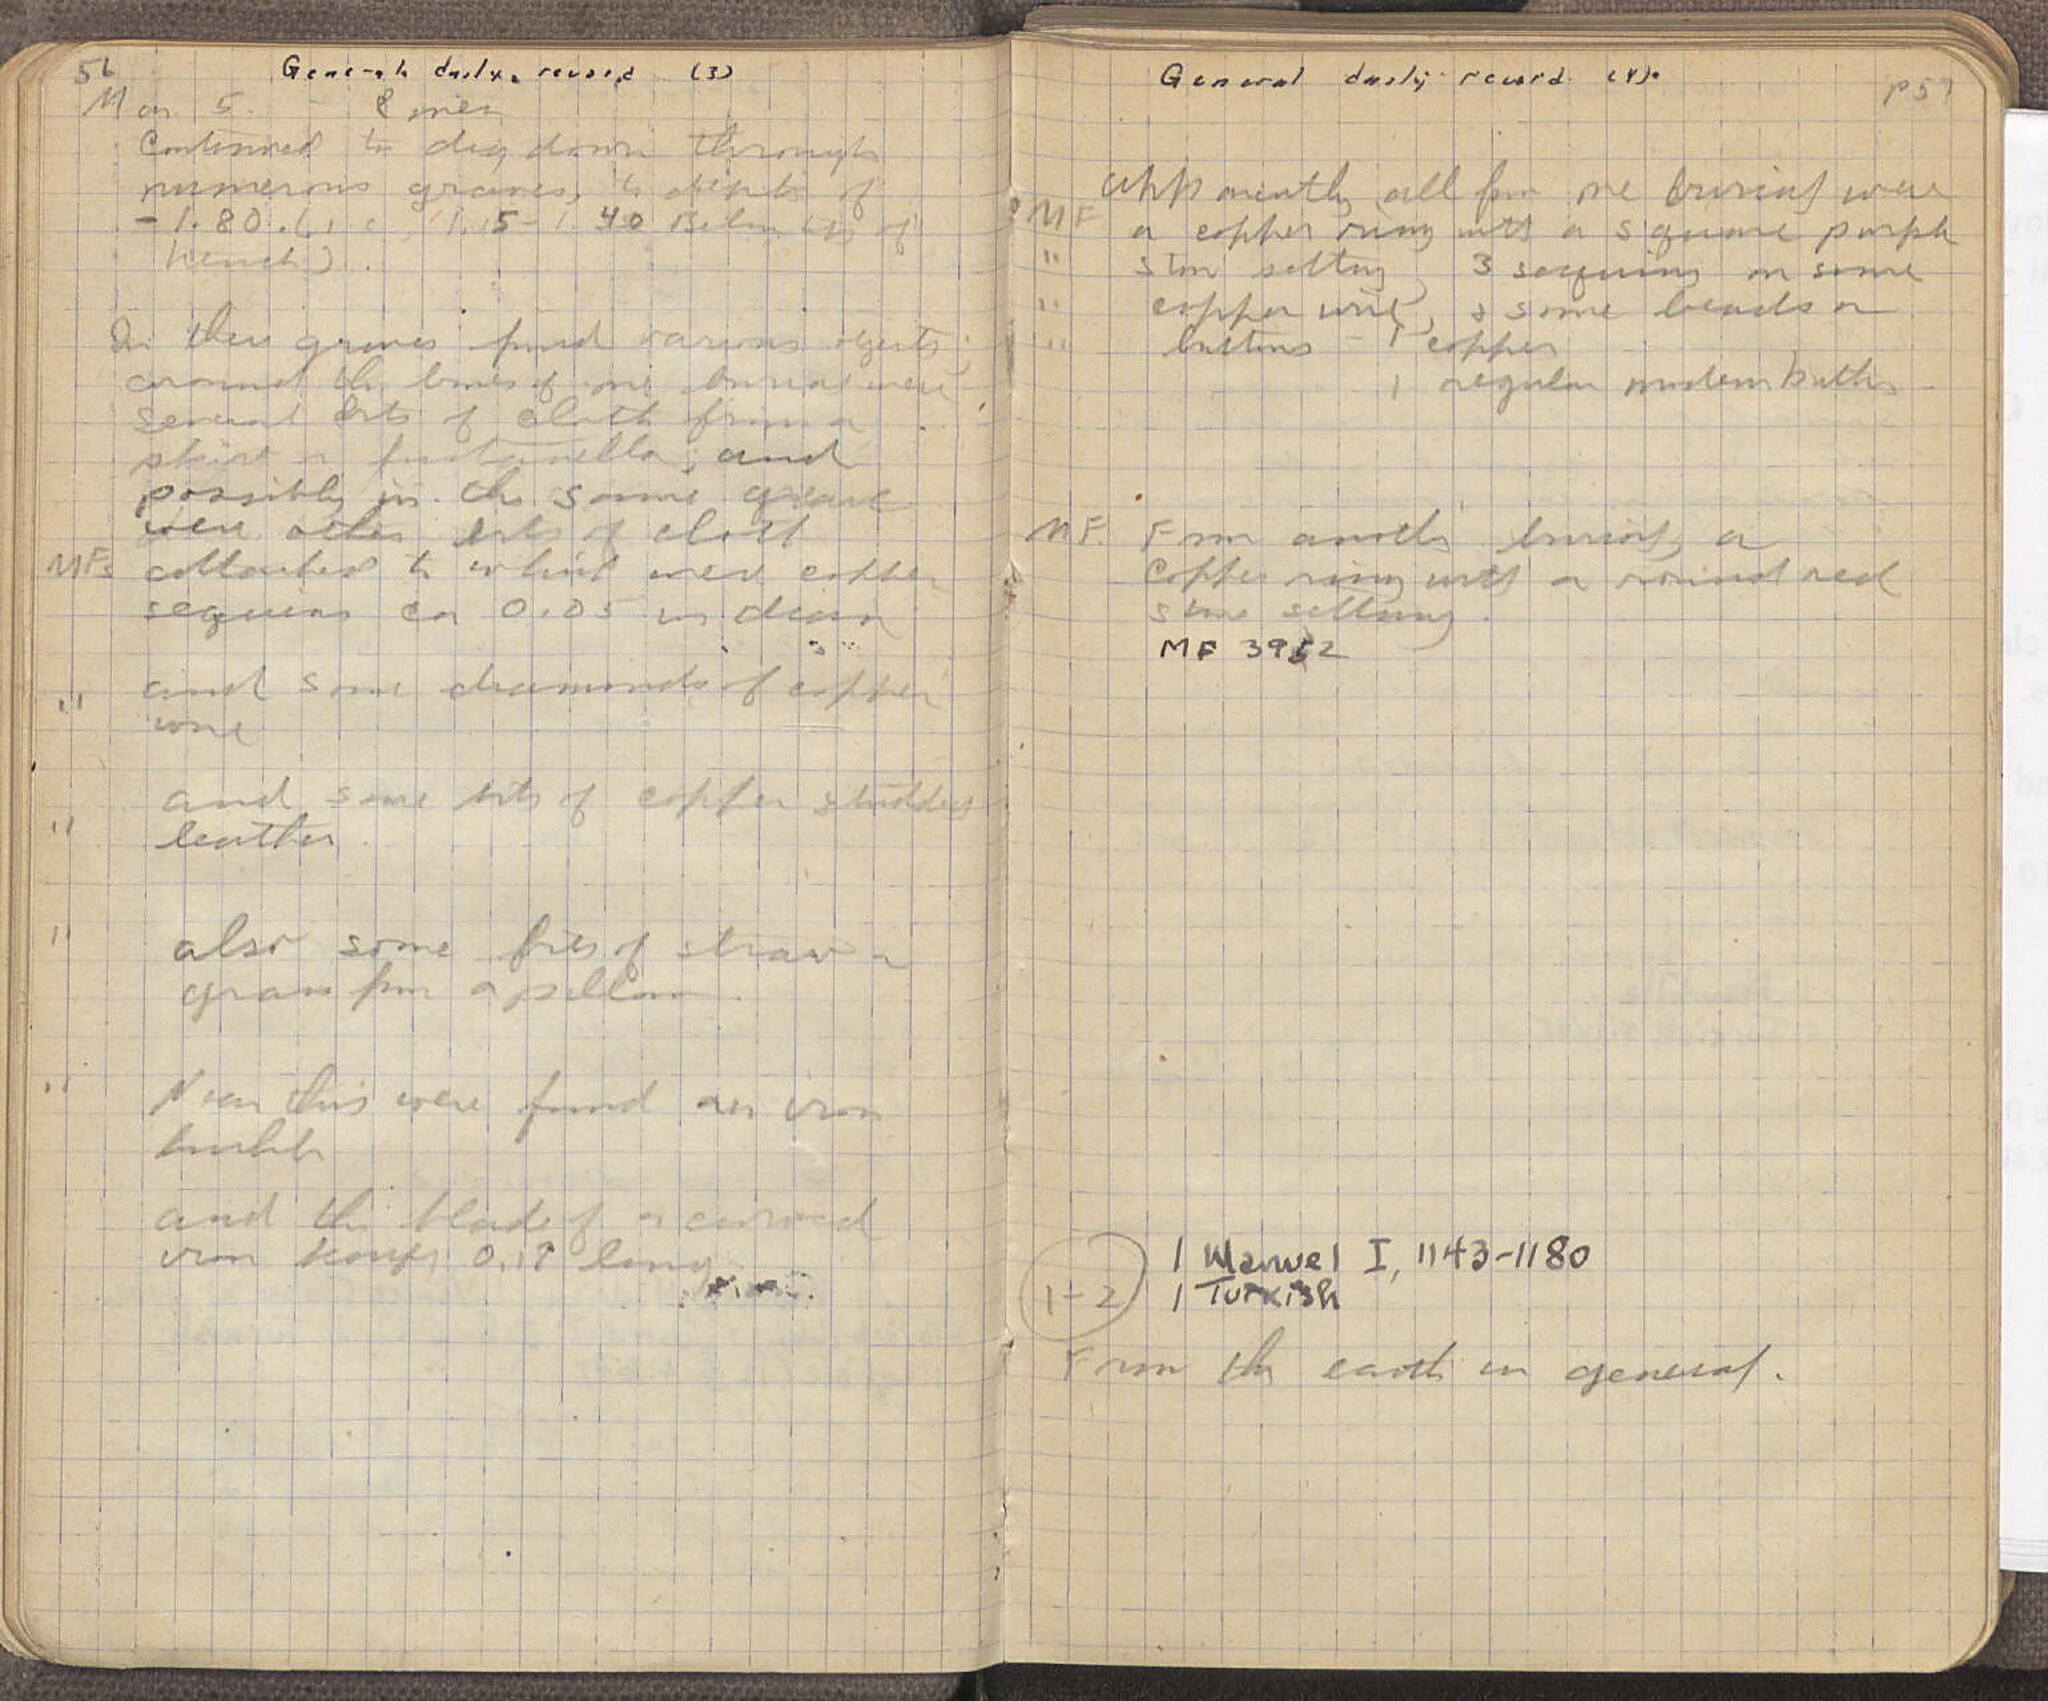 56
General daily record (3)
Mar 5. 8 men
Continued to dig down through
numerous graves, to depths of
-1.80. (i.e., 1.15-1.40 Below top of
trench).
In these graves found various objects;
around the bones of one burial were
several bits of cloth from a
skirt or fustanella, and
possibly in the same grave
were other bits of cloth
MFs attached to which were copper
sequins ca 0.05 in diam
" and some diamonds of copper
wire
" and some bits of copper studded
leather.
" also some bits of straw or
grass from a pillow.
" Near this were found an iron
buckle
and the blade of a curved
iron knife, long
General daily record (4).
p57
Apparently all from one burial were
MF a copper ring with a square purple
" stone setting, 3 sequins on some
" copper wire, & some beads or
" buttons - 1 copper
1 regular modern button
MF. From another burial, a
copper ring with a round red
stone setting.
MF 3952
1-2
1 Manuel I, 1143-1180
1 Turkish
From the earth in general.